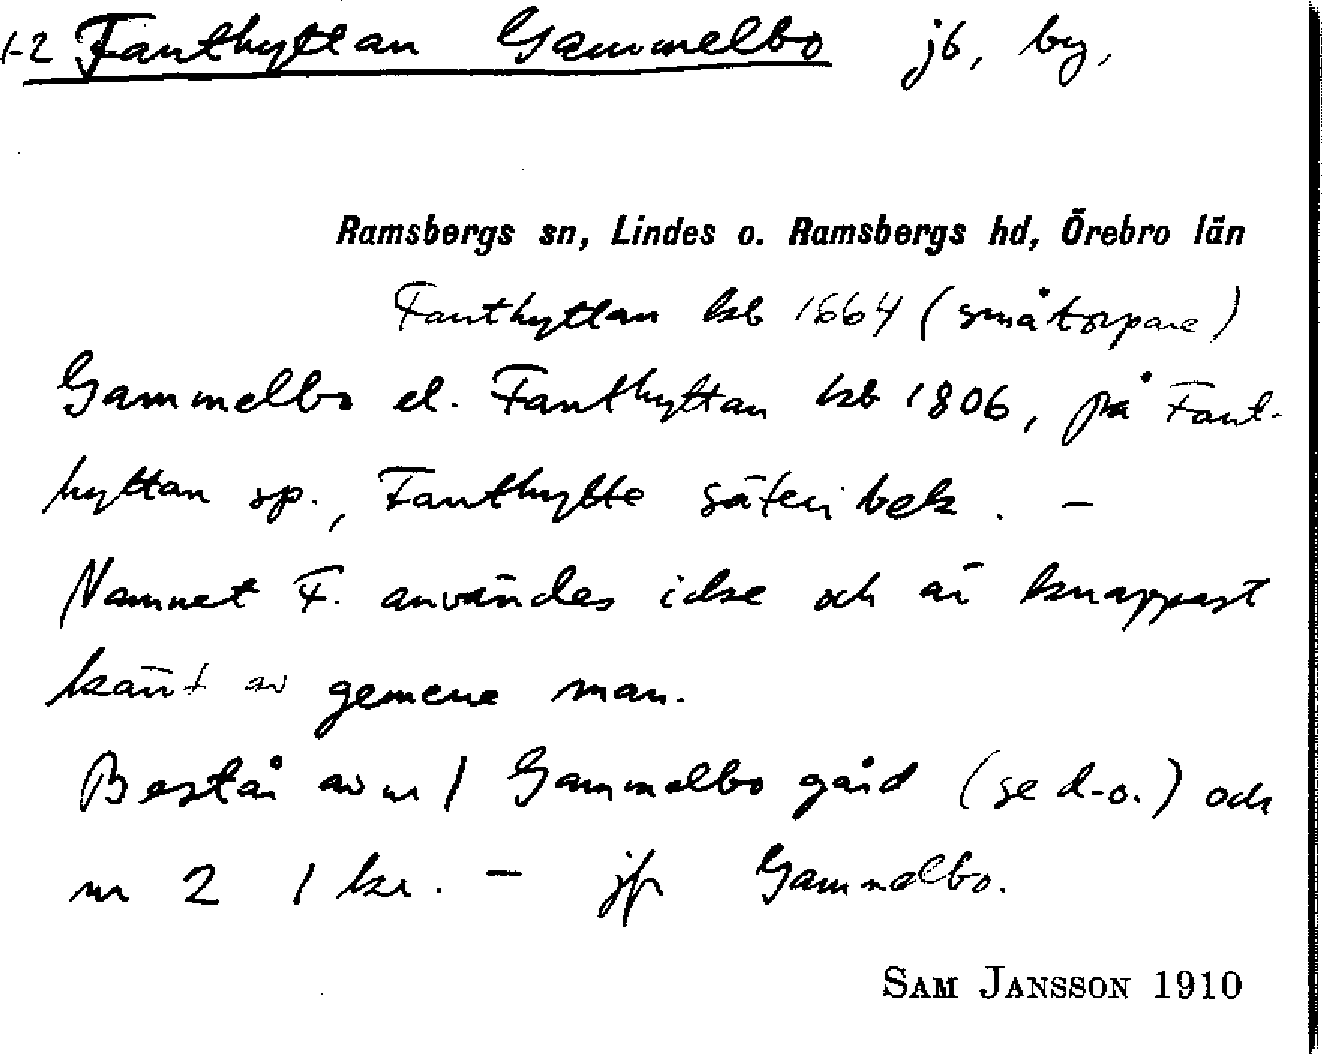 1-2 Fanthyttan Gammelbo jb, by,
Ramsbergs sn, Lindes o. Ramsbergs hd, Örebro län
Fanthyttan kb 1664 (småtorpare)
Gammelbo el. Fanthyttan kb 1806, på Fant-
hyttan sp., Fanthytte säteri bek. –
Namnet F. användes icke och är knappast
känt av gemene man.
Består av nr 1 Gammelbo gård (se d-o.) och
nr 2 1 kr. – jfr Gammelbo.
SAM JANSSON 1910